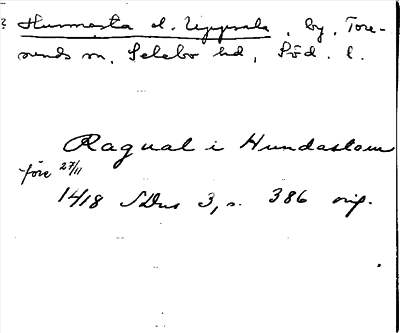 ? Hunmesta el. Uppsala, by, Tore-
sunds sn, Selebo hd, Söd. l.
Ragual i Hundastom
före 27/11
1418 SDns 3, s. 386 orig.